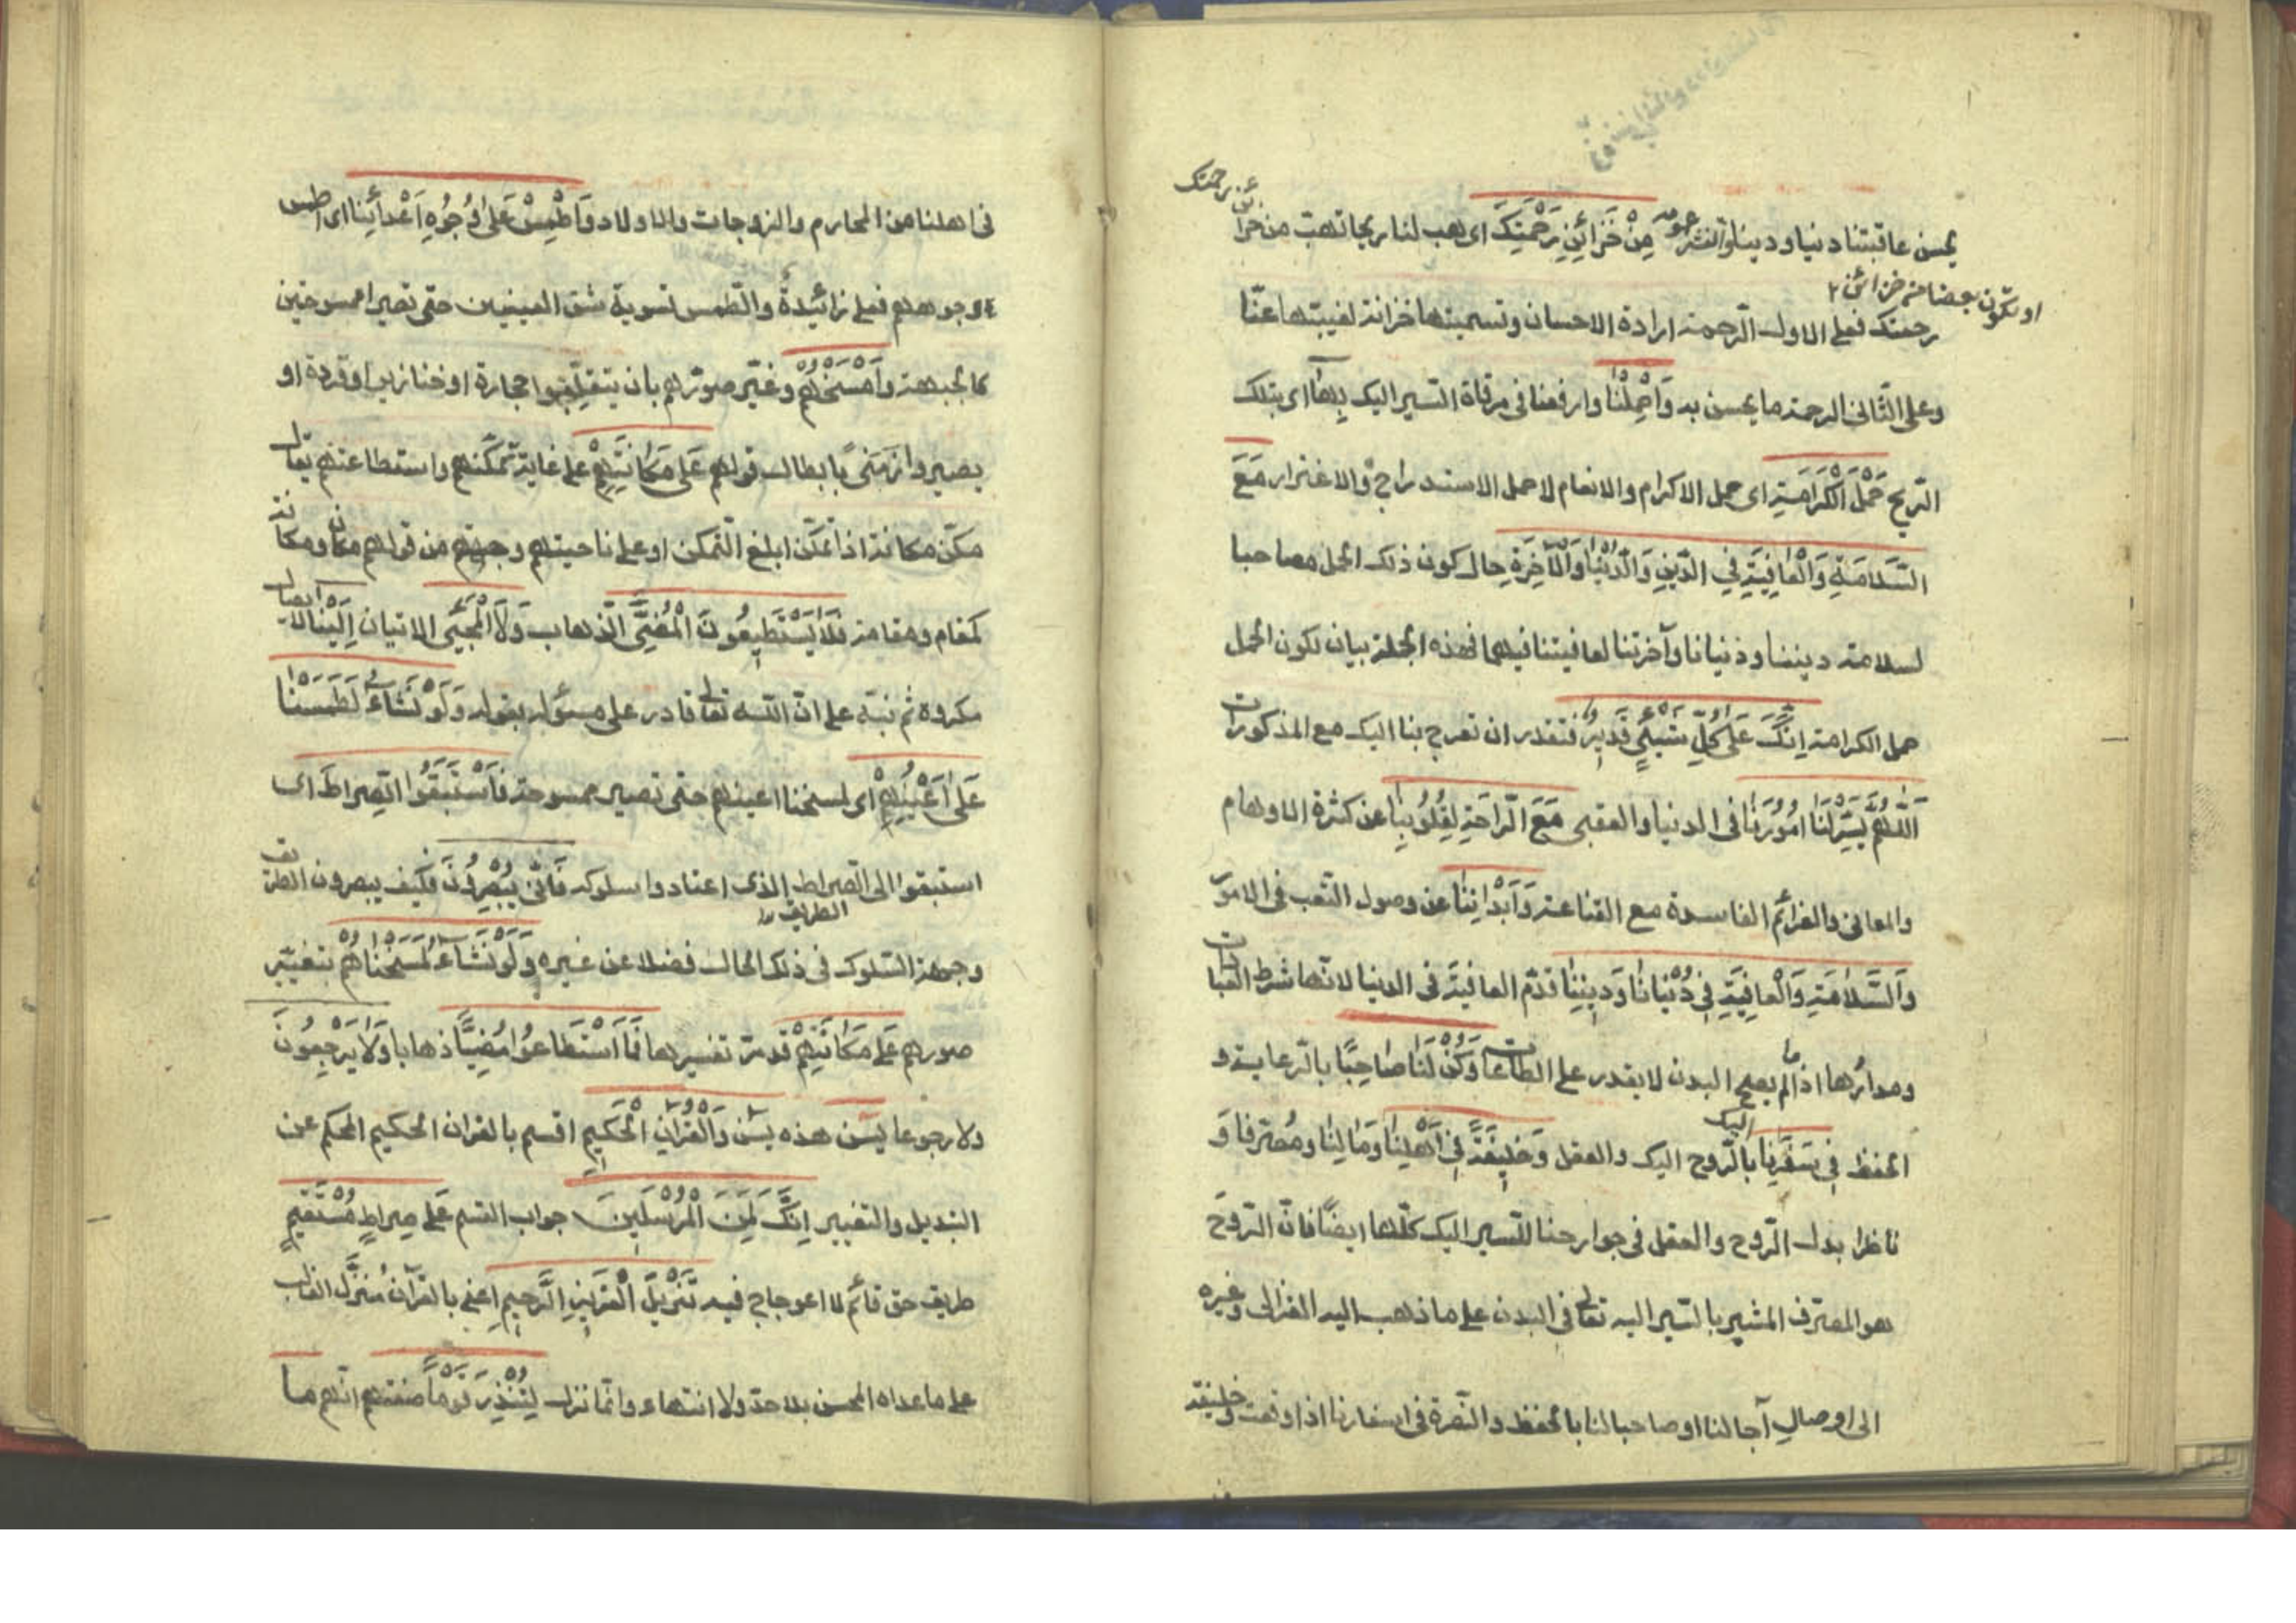 يحسن عاقبتنا دنيا ودينا وانشرها من خزائن رحمتك اى هب لنا ريحا تهب من خزا
ئن رحمتك
او تكون بعضا من خزائن
رحمتك فعلى الاول الرحمة ارادة الاحسان وتسميتها خزانة لغيبتها عنّا
وعلى الثّانى الرحمة ما يحسن به وَاحْمِلْنَا وارفعنا فى مرقاة السّير اليك بِهَا اى بتلك
الرّيح حَمْلَ الْكَرَامَةِ اى حمل الاكرام والانعام لا حمل الاستدراج والاغترار مَعَ
السَّلَامَةِ وَالْعَافِيَةِ فِي الدِّينِ وَالدُّنْيَا وَالْآخِرَةِ حال كون ذلك الحمل مصاحبا
لسلامة ديننا ودنيانا وآخرتنا لعافيتنا فيهما فهذه الجملة بيان لكون الحمل
حمل الكرامة اِنَّكَ عَلَى كُلِّ شَيْءٍ قَدِيرٌ فتقدر ان تعرج بنا اليك مع المذكورات
اَللّٰهُمَّ يَسِّرْ لَنَا اُمُورَنَا فى الدنيا والعقبى مَعَ الرَّاحَةِ لِقُلُوبِنَا عن كثرة الاوهام
والمعانى والغرائم الفاسدة مع القناعة وَاَبْدَانِنَا عن وصول التّعب فى الامور
وَالسَّلَامَةِ وَالْعَافِيَةِ فِي دُنْيَانَا وَدِينِنَا قدّم العافية فى الدنيا لانّها شرط العبادات
ومدارها اذ ما لم يصح البدن لا يقدر على الطاعات وَكُنْ لَنَا صَاحِبًا بالرّعاية و
الحفظ فِي سَفَرِنَا اليك بالرّوح اليك والعقل وَخَلِيفَةً فِي اَهْلِنَا وَمَالِنَا ومتصرفا و
ناظرا بدل الرّوح والعقل فى جوارحنا للسّير اليك كلّها ايضًا فانّ الرّوح
هو المتصرف المشير بالسّير اليه تعالى فى البدن على ما ذهب اليه الغزالى وغيره
الى اوصال آجالنا او صاحبا لنا بالحفظ والنّصرة فى اسفارنا اذا وقعت وخليفة
فى اهلنا من المحارم والزوجات والاولاد وَاطْمِسْ عَلَى وُجُوهِ اَعْدَائِنَا اى اطمس
وجوههم فعلى زائدةٌ والطّمس تسوية شق العينين حتى تصيرا ممسوحتين
كالجبهة وَامْسَخْهُمْ وغيّر صورهم بان ينقلبوا حجارة او خنازير او قردة او
بصير وازمنى بابطال قولهم عَلَى مَكَانَتِهِمْ على غاية تمكّنهم واستطاعتهم يقال
مكن مكانة اذا تمكّن ابلغ التّمكن او على ناحيتهم وجهتهم من قولهم مكان ومكانة
كمقام ومقامة فَلَا يَسْتَطِيعُونَ الْمُضِيَّ الذهاب وَلَا الْمَجِيءَ الاتيان اِلَيْنَا لايصال
مكروه ثم نبّه على انّ اللّه تعالى قادر على مسؤله بقوله وَلَوْ نَشَاءُ لَطَمَسْنَا
عَلَى اَعْيُنِهِمْ اى لمسخنا اعينهم حتى تصير ممسوحة فَاسْتَبَقُوا الصِّرَاطَ اى
استبقوا الى الصراط الطريق الذى اعتادوا سلوكه فَاَنَّى يُبْصِرُونَ فكيف يبصرون الطريق
وجهة السّلوك فى ذلك الحال فضلا عن غيره وَلَوْ نَشَاءُ لَمَسَخْنَاهُمْ بتغيير
صورهم عَلَى مَكَانَتِهِمْ قد مرّ تفسيرها فَمَا اسْتَطَاعُوا مُضِيًّا ذهابا وَلَا يَرْجِعُونَ
ولا رجوعا يٰسٓ هذه يٰسٓ وَالْقُرْاٰنِ الْحَكِيمِ اقسم بالقرآن الحكيم المحكم عن
التبديل والتغيير اِنَّكَ لَمِنَ الْمُرْسَلِينَ جواب القسم عَلَى صِرَاطٍ مُسْتَقِيمٍ
طريق حق قائم لا اعوجاج فيه تَنْزِيلَ الْعَزِيزِ الرَّحِيمِ اعنى بالقرآن مُنزَّل الغالب
على ما عداه المحسن بلا حدّ ولا انتهاء وانّما نزل لِتُنْذِرَ قَوْمًا صفتهم انّهم ما